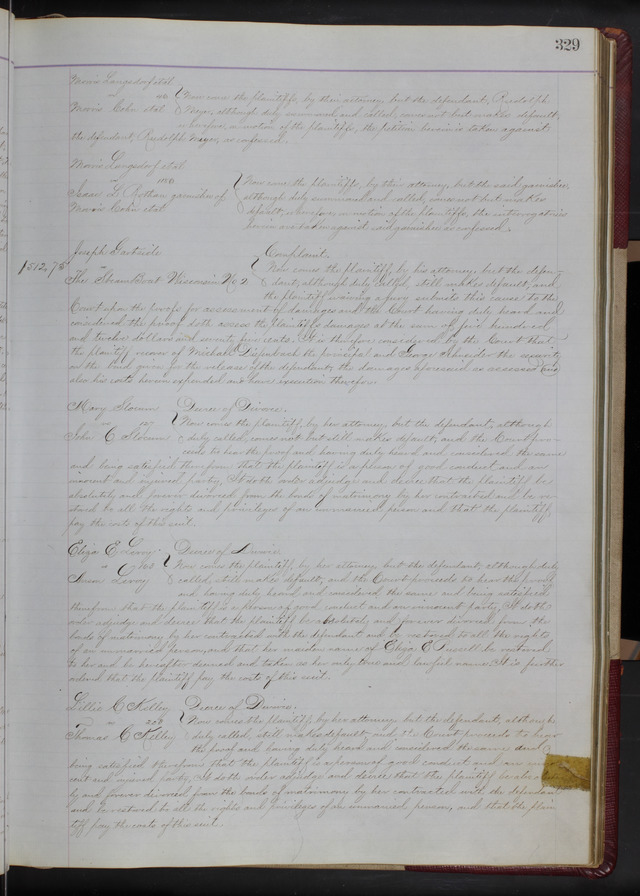 329
Morris Langsdorf et al
Now come the plaintiffs, by their attorney but the defendant, Rudolph
Morris Cohn et al Meyer, although duly summoned and called, comes not but makes default,
wherefore, on motion of the plaintiffs, the petition herein is taken against
the defendant, Rudolph Meyer, as confessed.
Morris Langsdorf et al
Now come the plaintiffs, by their attorney, but the said garnishee,
Isaac S. garnishee of although duly summoned and called, comes not but makes
Morris Cohn et al default, wherefore on motion of the plaintiffs, the interrogatories
herein are taken against said garnishee as confessed.
Joseph Complaint.
$512.75 Now comes the plaintiff, by his attorney, but the defen-
The Steam Boat Wisconsin No 2 dant, although duly called, still makes default, and
the plaintiff waiving a jury submits this cause to the
Court upon the proofs for assessment of damages and the Court having duly heard and
considered the proof doth assess the plaintiff's damages at the sum of five hundred
and twelve dollars and seventy five cents. It is therefore considered by the Court that
the plaintiff recover of Michael the principal and George the security
on the bond given for the release of the defendant, the damages aforesaid as assessed and
also his costs herein expended and have execution therefor.
Mary Slocum Decree of Divorce.
Now comes the plaintiff, by her attorney, but the defendant, although
John C Slocum duly called, comes not but still makes default, and the Court pro-
ceeds to hear the proof and having duly heard and considered the same
and being satisfied therefrom that the plaintiff is a person of good conduct and an
innocent and injured party, It doth order adjudge and decree that the plaintiff be
absolutely and forever divorced from the bonds of matrimony by her contracted and be re-
stored to all the rights and privileges of an unmarried person and that the plaintiff
pay the costs of this suit.
Eliza E. Leroy Decree of Divorce
Now comes the plaintiff, by her attorney but the defendant, although duly
Leroy called, still makes default, and the Court proceeds to hear the proof
and having duly heard and considered the same and being satisfied
therefrom that the plaintiff is a person of good conduct and an innocent party, It doth
order adjudge and decree that the plaintiff be absolutely and forever divorced from the
bonds of matrimony by her contracted with the defendant and be restored to all the rights
of an unmarried person and that her maiden name of Eliza E Russell be restored
to her and be hereafter deemed and taken as her only true and lawful name. It is further
ordered that the plaintiff pay the costs of this suit.
Lillie C Kelley Decree of Divorce.
Now comes the plaintiff, by her attorney but the defendant, although
Thomas C Kelley duly called, still makes default, and the Court proceeds to hear
the proof and having duly heard and considered the same and
being satisfied therefrom that the plaintiff is a person of good conduct and an
and injured party, It doth order adjudge and decree that the plaintiff be
and forever divorced from the bonds of matrimony by her contracted with the defendant
and be restored to all the rights and privileges of an unmarried person, and that the plain-
tiff pay the costs of this suit.